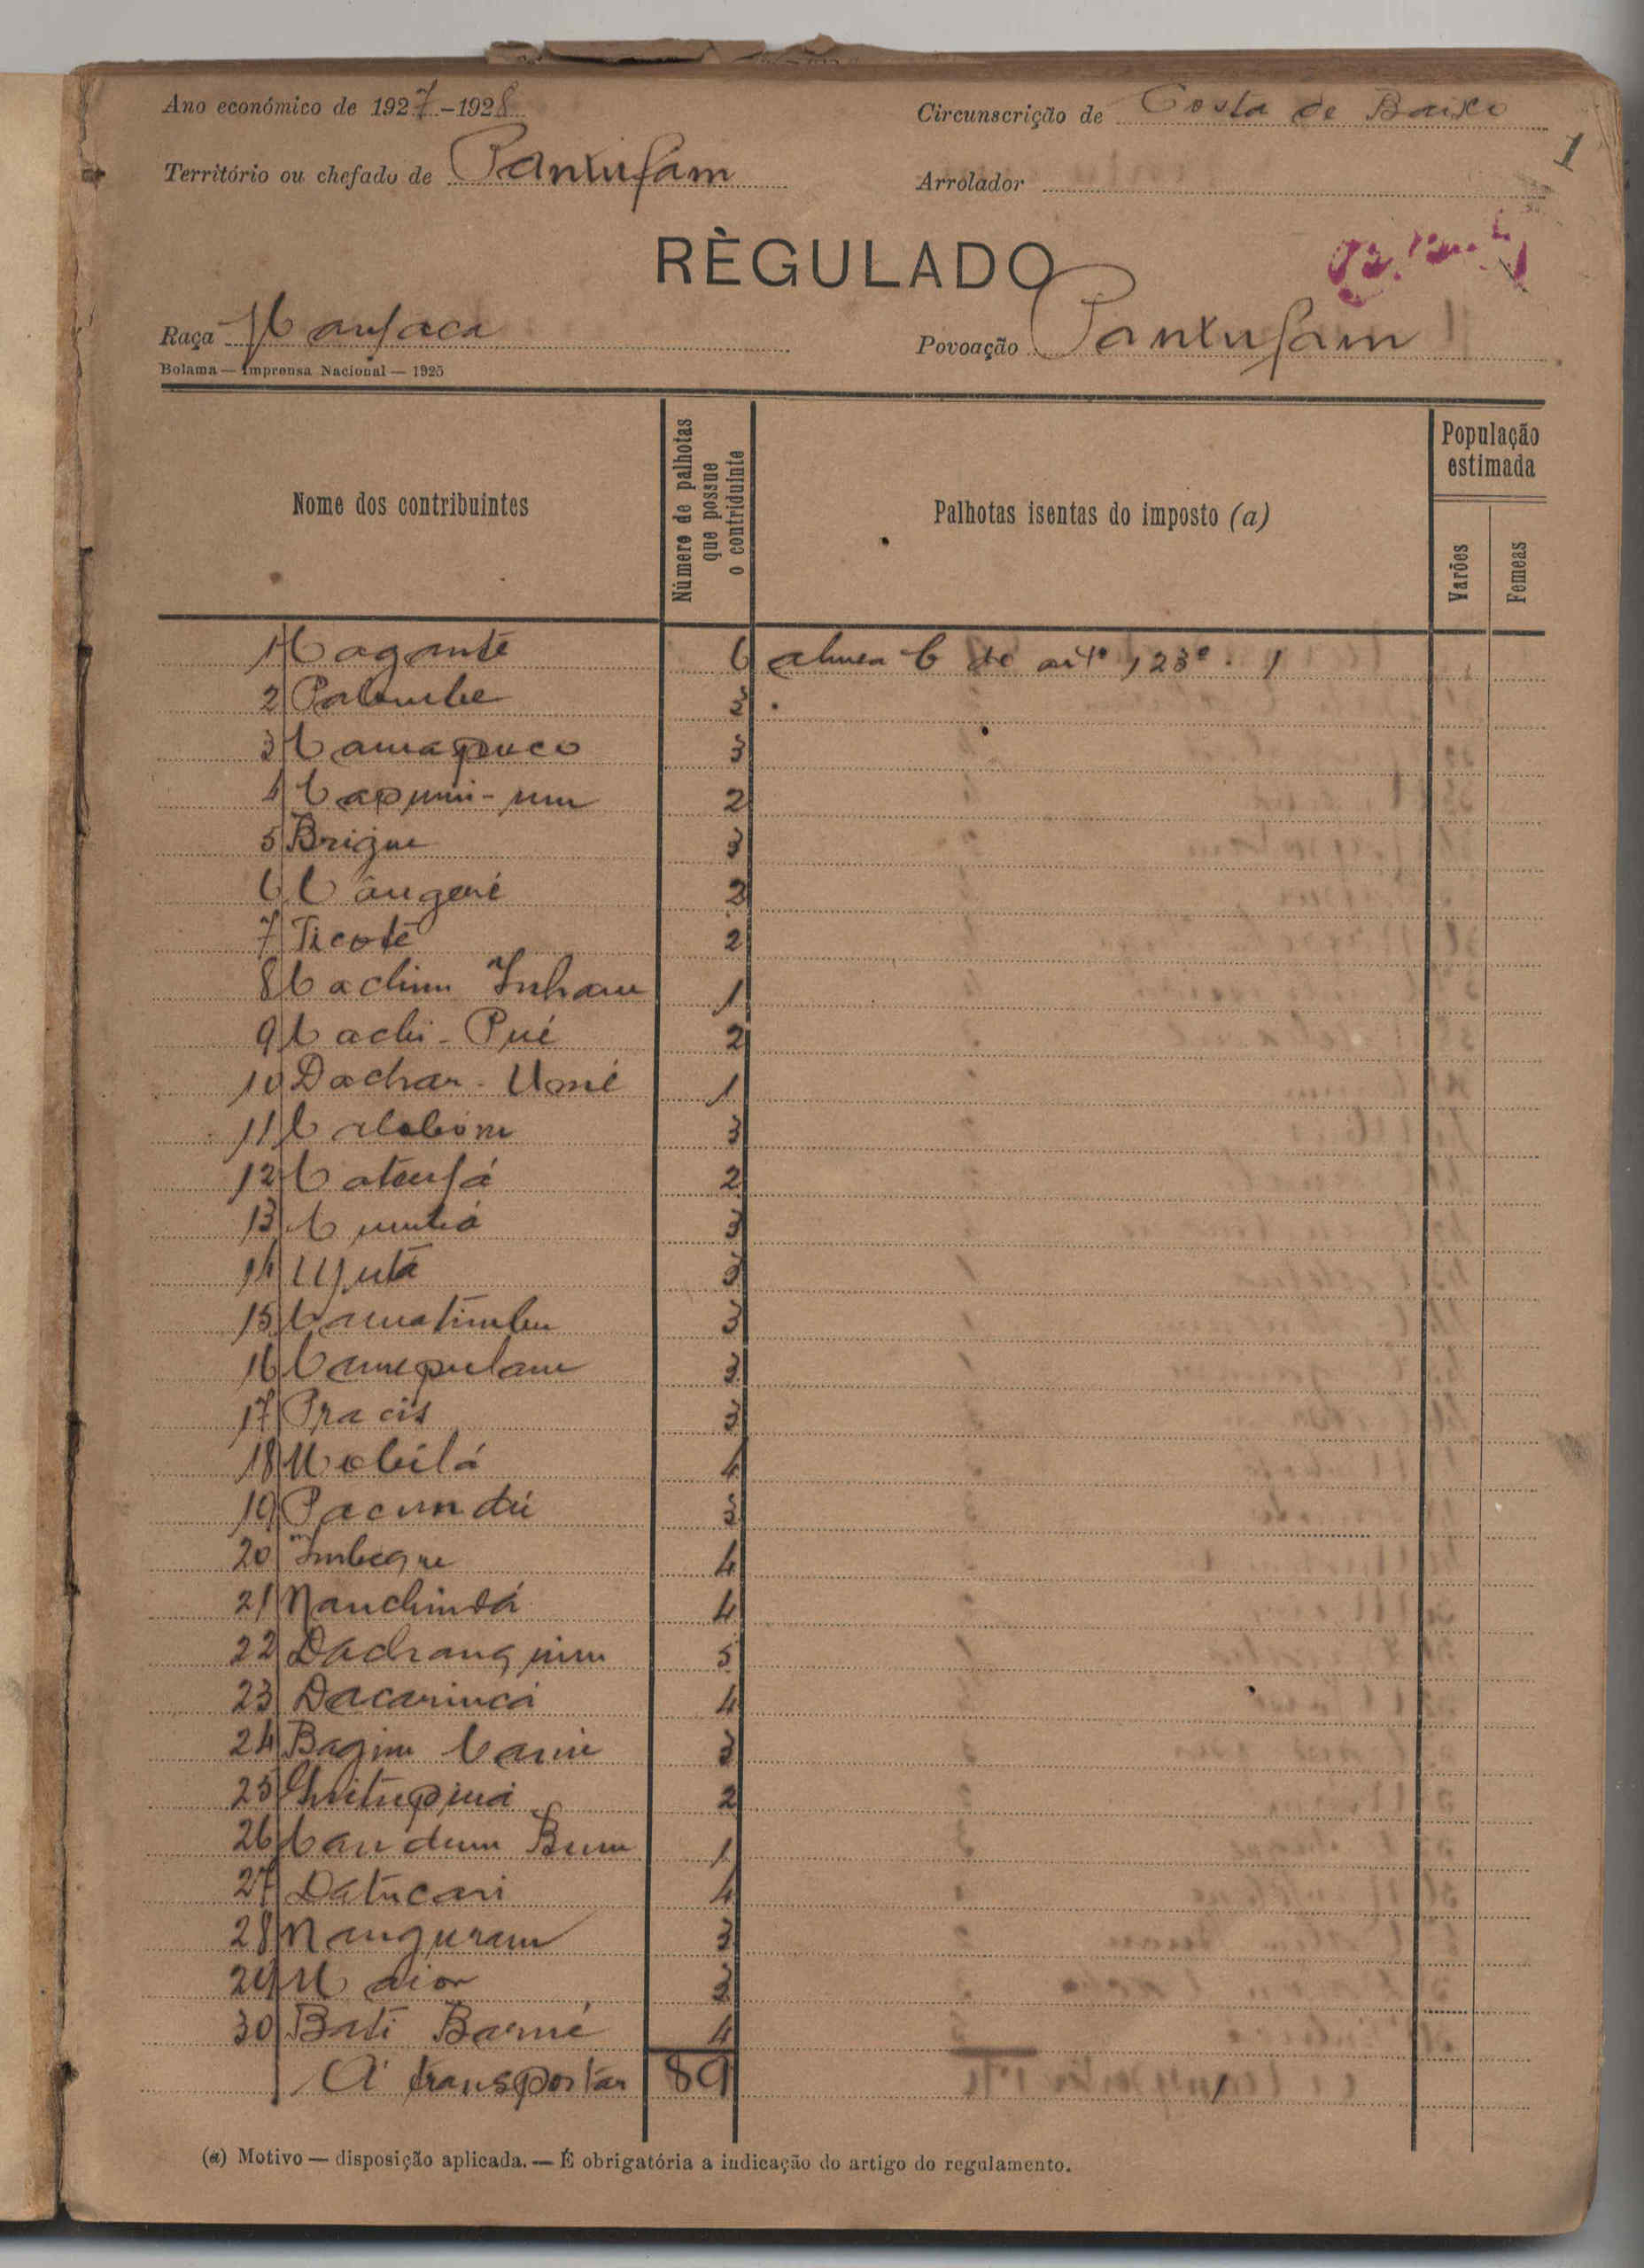 Ano económico de 1927-1928
Circunscrição de Costa de Baixo
1
Território ou chefado de Pantufam
Arrolador
RÈGULADO
Raça Manfaca
Povoação Pantufam
Bolama — Imprensa Nacional — 1925
Nome dos contribuintes
Número de palhotas que possue o contriduinte
Palhotas isentas do imposto (a)
População estimada
Varões
Femeas
1 Cagante 6 alinea b do artº 123º . 1
2 Palembe 3
3 Camapuco 3
4 2
5 Brique 3
6 Cangeré 2
7 Ticoté 2
8 Cachim Inham 1
9 Cachi - Pué 2
10 Dachar - Umé 1
11 3
12 Catenfá 2
13 3
14 3
15 Camatimbu 3
16 Camepulam 3
17 Pracis 3
18 Mobilá 4
19 Pacundú 3
20 Imbeque 4
21 Nanchindá 4
22 5
23 Dacarincá 4
24 Bagim 3
25 2
26 Candum Bum 1
27 Datucari 4
28 Nanguram 3
29 Maior 3
30 Bati Barné 4
A transportar 89 1
(a) Motivo — disposição aplicada. — É obrigatória a indicação do artigo do regulamento.